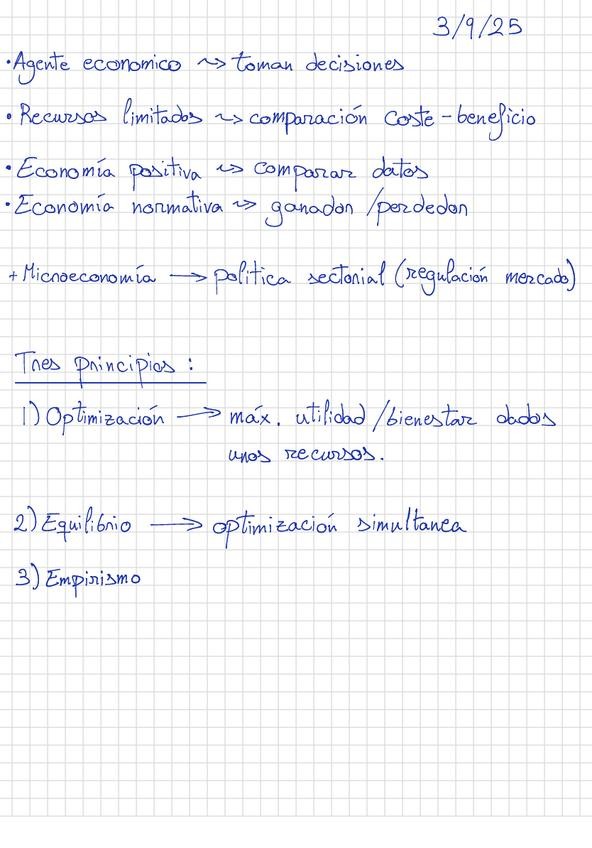 3/9/25
• Agente economico ⇝ toman decisiones
• Recursos limitados ⇝ comparación coste-beneficio
• Economía positiva ⇝ comparar datos
• Economía normativa ⇝ ganador/perdedor
+ Microeconomía → politica sectorial (regulación mercado)
Tres principios :
1) Optimización → máx. utilidad/bienestar dados
unos recursos.
2) Equilibrio → optimización simultanea
3) Empirismo